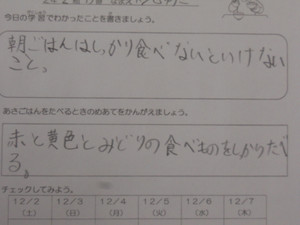 今日の学習でわかったことを書きましょう。
朝ごはんはしっかり食べないといけない
こと。
あさごはんをたべるときのめあてをかんがえましょう。
赤と黄色とみどりの食べものをしかりたべ
る。
チェックしてみよう。
12/2 12/3 12/4 12/5 12/6 12/7
(土) (日) (月) (火) (水) (木)